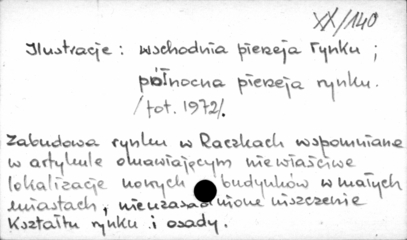 XX/140
Ilustracje : wschodnia pierzeja rynku ;
północna pierzeja rynku.
/fot. 1972/.
Zabudowa rynku w Raczkach wspomniana
w artykule omawiającym niewłaściwe
lokalizacje nowych budynków w małych
miastach, nieuzasadnione niszczenie
kształtu rynku i osady.